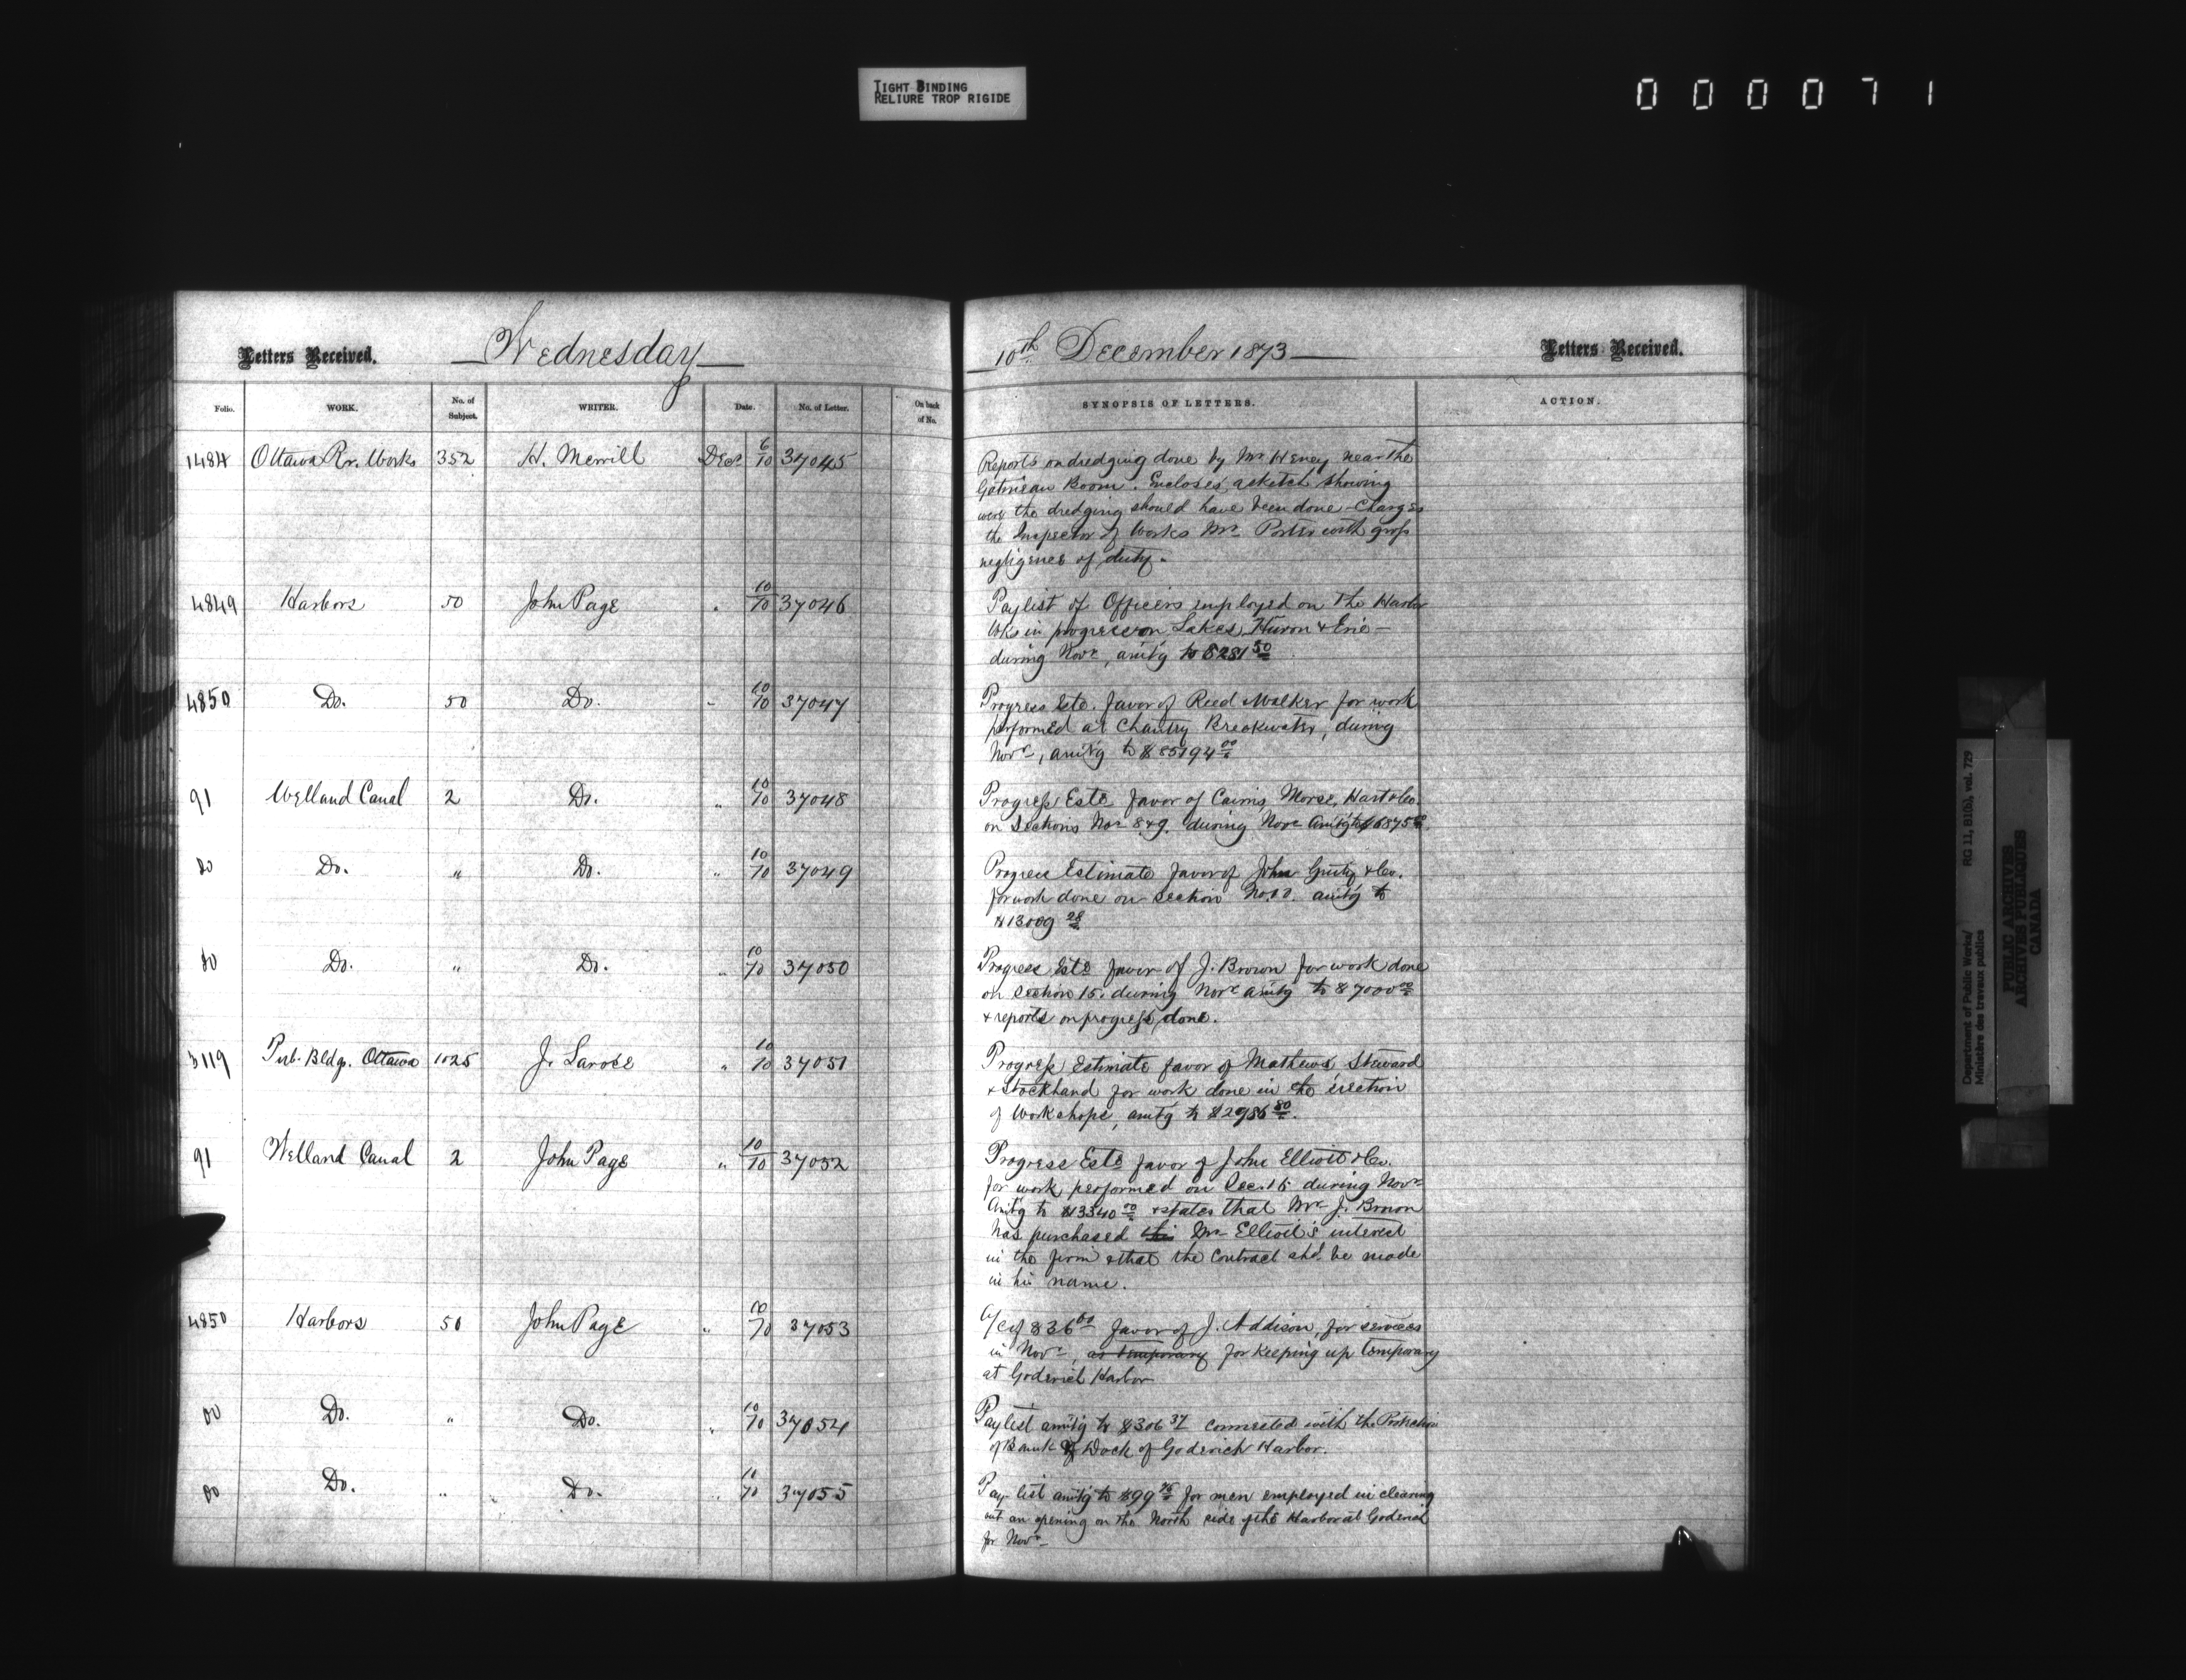 TIGHT BINDING
RELIURE TROP RIGIDE
000071
Letters Received. Wednesday 10th December 1873 Letters Received.
Folio. WORK. No. of Subject. WRITER. Date. No. of Letter. On back of No. SYNOPSIS OF LETTERS. ACTION.
1484 Ottawa Rr. Works 352 H. Merrill Decr 6/10 37045 Reports on dredging done by Mr Heney near the
Gatineau Boom. Encloses a sketch showing
were the dredging should have been done - Charges
the Inspector of Works Mr Porter with gross
negligence of duty.
4849 Harbors 50 John Page " 10/10 37046 Paylist of Officers employed on the Harbor
Wks in progress on Lakes Huron & Erie -
during Novr, amtg to $281 50
4850 Do. 50 Do. " 10/10 37047 Progress Este. favor of Reed & Walker for work
performed at Chantry Breakwater, during
Novr, amtg to $85194 00
91 Welland Canal 2 Do. " 10/10 37048 Progress Este favor of Cairns, Morse, Hart & Co.
on Sections Nos 8 & 9. during Novr Amtg to $6875
Do Do. " Do. " 10/10 37049 Progress Estimate favor of John Ginty & Co.
for work done on Section No. amtg to
$13009 28
Do Do. " Do. " 10/10 37050 Progress Este favor of J. Brown for work done
on Section 15. during Novr amtg to $7000 00
& reports on progress done.
3119 Pub. Bldgs. Ottawa 1025 J. Larose " 10/10 37051 Progress Estimate favor of Mathews, Steward
& Stockhand for work done in the erection
of Workshops, amtg to $2986 80.
91 Welland Canal 2 John Page " 10/10 37052 Progress Este favor of John Elliott & Co.
for work performed on Sec. 15 during Novr
Amtg to $13340 00 & states that Mr J. Brown
has purchased his Mr Elliott's interest
in the firm & that the Contract shd. be made
in his name.
4850 Harbors 50 John Page " 10/10 37053 A/c of $36 00 favor of J. Addison, for services
in Novr, as temporary for keeping up temporary
at Goderich Harbor
Do Do. " Do. " 10/10 37054 Paylist amtg to $306 37 connected with the Protection
of Bank of Dock of Goderich Harbor.
Do Do. " Do. " 10/10 37055 Pay list amtg to $99 75 for men employed in clearing
out an opening on the North side of the Harbor at Goderich
for Novr
Department of Public Works/ RG 11, B1(b), vol. 729
Ministère des travaux publics
PUBLIC ARCHIVES
ARCHIVES PUBLIQUES
CANADA